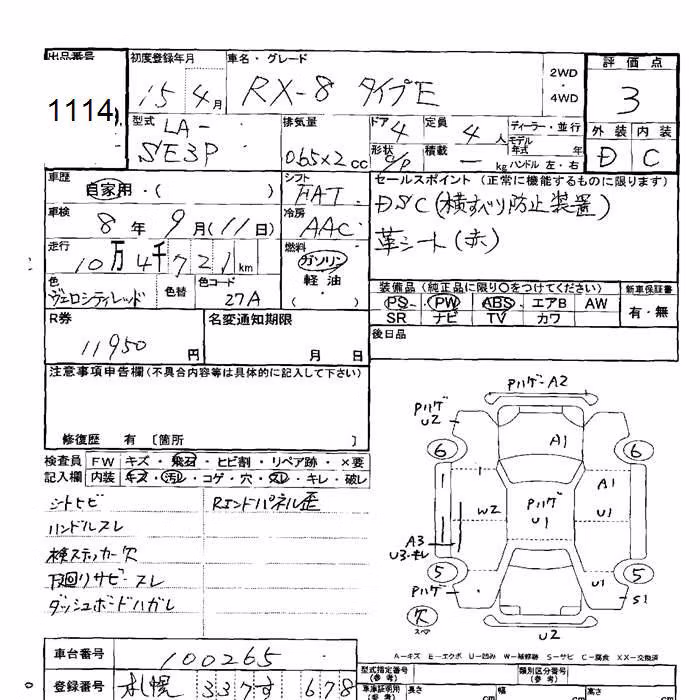 出品番号 初度登録年月 車名・グレード 評価点
1114 15年4月 RX-8 タイプE 2WD・4WD 3
型式 LA-SE3P 排気量 0.65×2cc ドア 4 定員 4人 ディーラー・並行
形状 c/p 積載 -kg モデル年式 年 ハンドル 左・右
外装 内装
D C
車歴 自家用・( ) シフト FAT
セールスポイント(正常に機能するものに限ります)
DSC(横すべり防止装置)
革シート(赤)
車検 8年9月(11日) 冷房 AAC
走行 10万4千721km 燃料 ガソリン 軽油 ( )
色 ヴェロシティレッド 色替 色コード 27A
装備品(純正品に限り○をつけてください) 新車保証書
PS PW ABS・エアB AW 有・無
SR ナビ TV カワ
R券 11950円 名変通知期限 月 日
後日品
注意事項申告欄(不具合内容等は具体的に記入して下さい)
修復歴 有〔箇所 〕
検査員 FW キズ・飛石・ヒビ割・リペア跡・×要
記入欄 内装 キズ・汚レ・コゲ・穴・スレ・キレ・破レ
シートヒビ Rエンドパネル歪
ハンドルスレ
検ステッカー欠
下廻りサビースレ
ダッシュボードハガレ
Pハゲ-A2
Pハゲ
U2
A1
6 6
A1
W2 Pハゲ
U1
A3
U3・キレ
5 5
Pハゲ U1 S1
欠
スペア
U2
A-キズ E-エクボ U-凹み W-補修跡 S-サビ C-腐食 XX-交換済
車台番号 100265
登録番号 札幌 337 す 678
型式指定番号(参考) 類別区分番号(参考)
車庫証明用(参考) 長さ cm 幅 cm 高さ cm